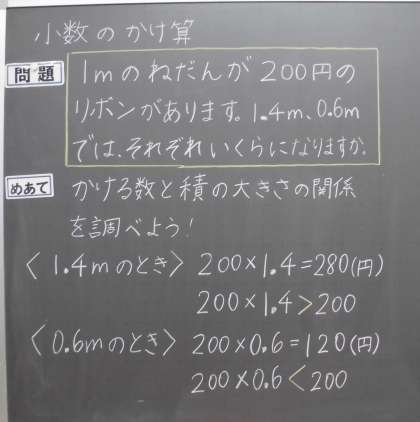 小数のかけ算
問題
1mのねだんが200円の
リボンがあります。1.4m、0.6m
では、それぞれいくらになりますか。
めあて かける数と積の大きさの関係
を調べよう!
〈1.4mのとき〉 200×1.4=280(円)
200×1.4>200
〈0.6mのとき〉 200×0.6=120(円)
200×0.6<200